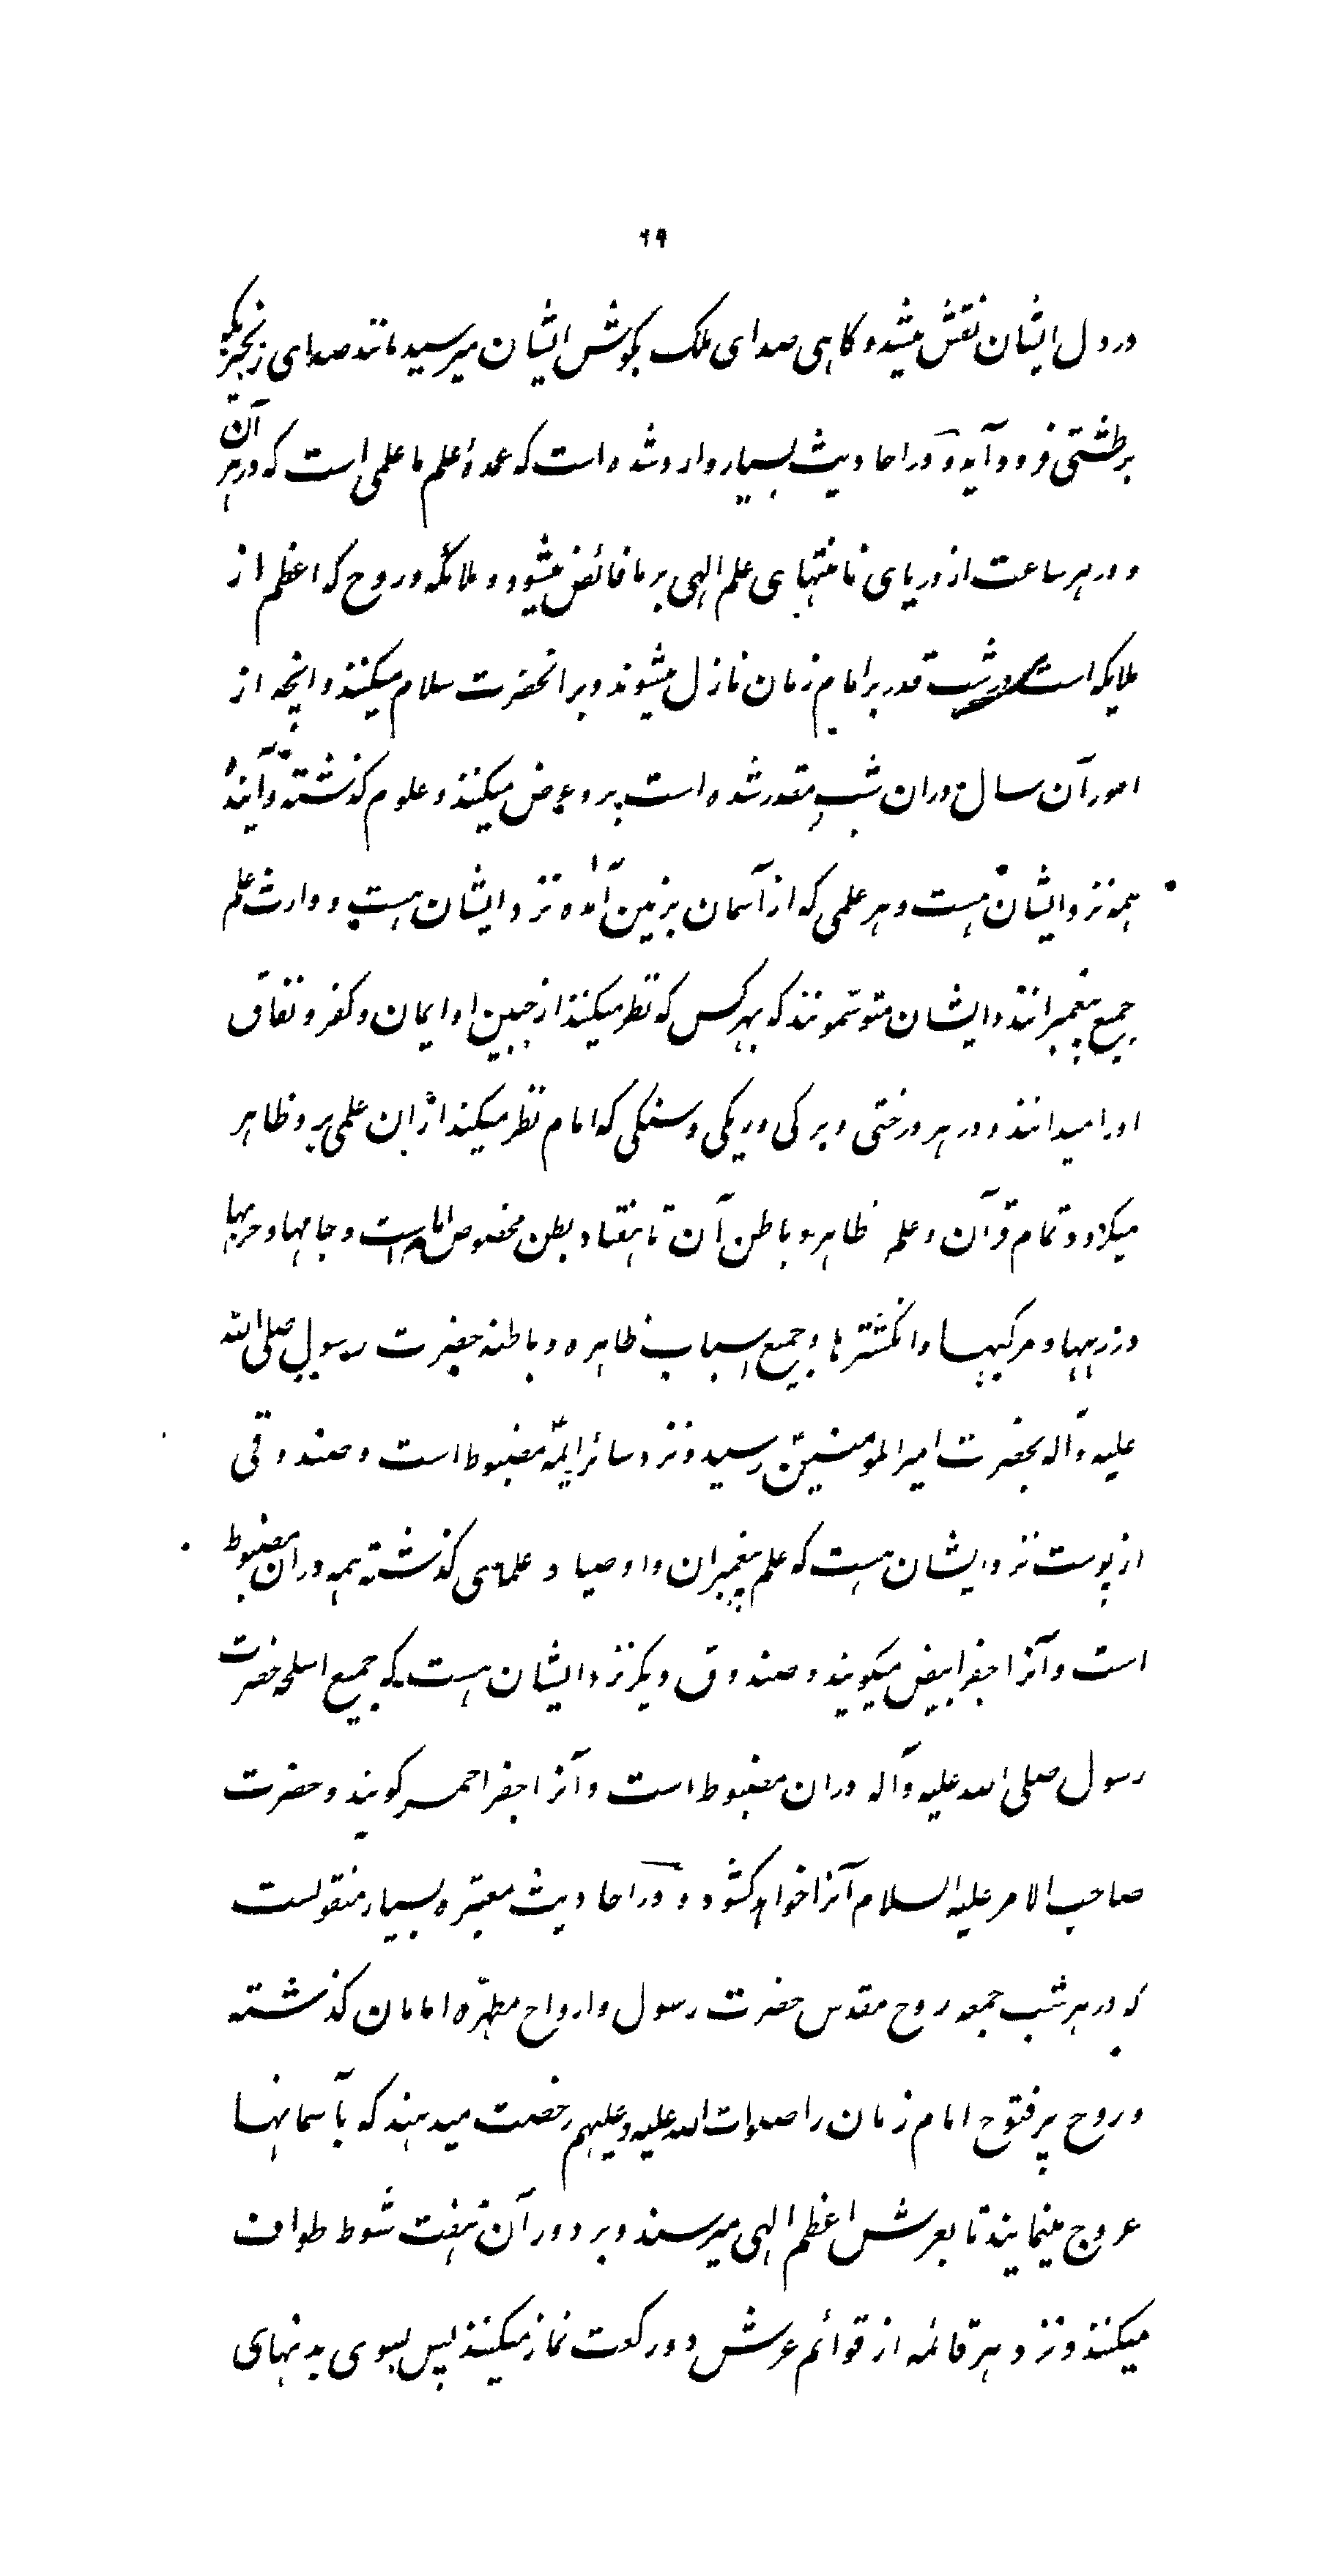 ٦٩
در دل ایشان نقش میشد و کاهی صدای ملک بکوش ایشان میرسید مانند صدای زنجیر یکه
بر طشتی فرود آید و در احادیث بسیار وارد شده است که عمدهٔ علم ما علمی است که در هر آن
و در هر ساعت از دریای نامنتهای علم الهی بر ما فائض میشود و ملائکه و روح که اعظم از
ملایکه است در شب قدر بر امام زمان نازل میشوند و بر انحضرت سلام میکنند و انچه از
امور آن سال در ان شب مقدر شده است برو عرض میکنند و علوم کذشته و آینده
همه نزد ایشان هست و هر علمی که از آسمان بزمین آمده نزد ایشان هست و وارث علم
جمیع پیغمبرانند و ایشان متوسّمونند که بهر کس که نظر میکنند از جبین او ایمان و کفر و نفاق
او را میدانند و در هر درختی و برکی و ریکی و سنکی که امام نظر میکند از ان علمی برو ظاهر
میکردد و تمام قرآن و علم ظاهر و باطن آن تا هفتاد بطن مخصوص امامست و جامها و حربها
و زرهها و مرکبها و انکشترها و جمیع اسباب ظاهره و باطنه حضرت رسول صلی الله
علیه و آله بحضرت امیر المومنین رسید و نزد سائر ایمّه مضبوط است و صندوقی
از پوست نزد ایشان هست که علم پیغمبران و اوصیا و علمای کذشته همه در ان مضبوط
است و آنرا جفر ابیض میکویند و صندوق دیکر نزد ایشان هست که جمیع اسلحه حضرت
رسول صلی الله علیه و آله در ان مضبوط است و آنرا جفر احمر کویند و حضرت
صاحب الامر علیه السلام آنرا خواهد کشود و در احادیث معتبره بسیار منقولست
که در هر شب جمعه روح مقدس حضرت رسول و ارواح مطهّره امامان کذشته
و روح پر فتوح امام زمان را صلوات الله علیه و علیهم رخصت میدهند که بآسمانها
عروج مینمایند تا بعرش اعظم الهی میرسند و بر دور آن هفت شوط طواف
میکنند و نزد هر قائمه از قوائم عرش دو رکعت نماز میکنند پس بسوی بدنهای